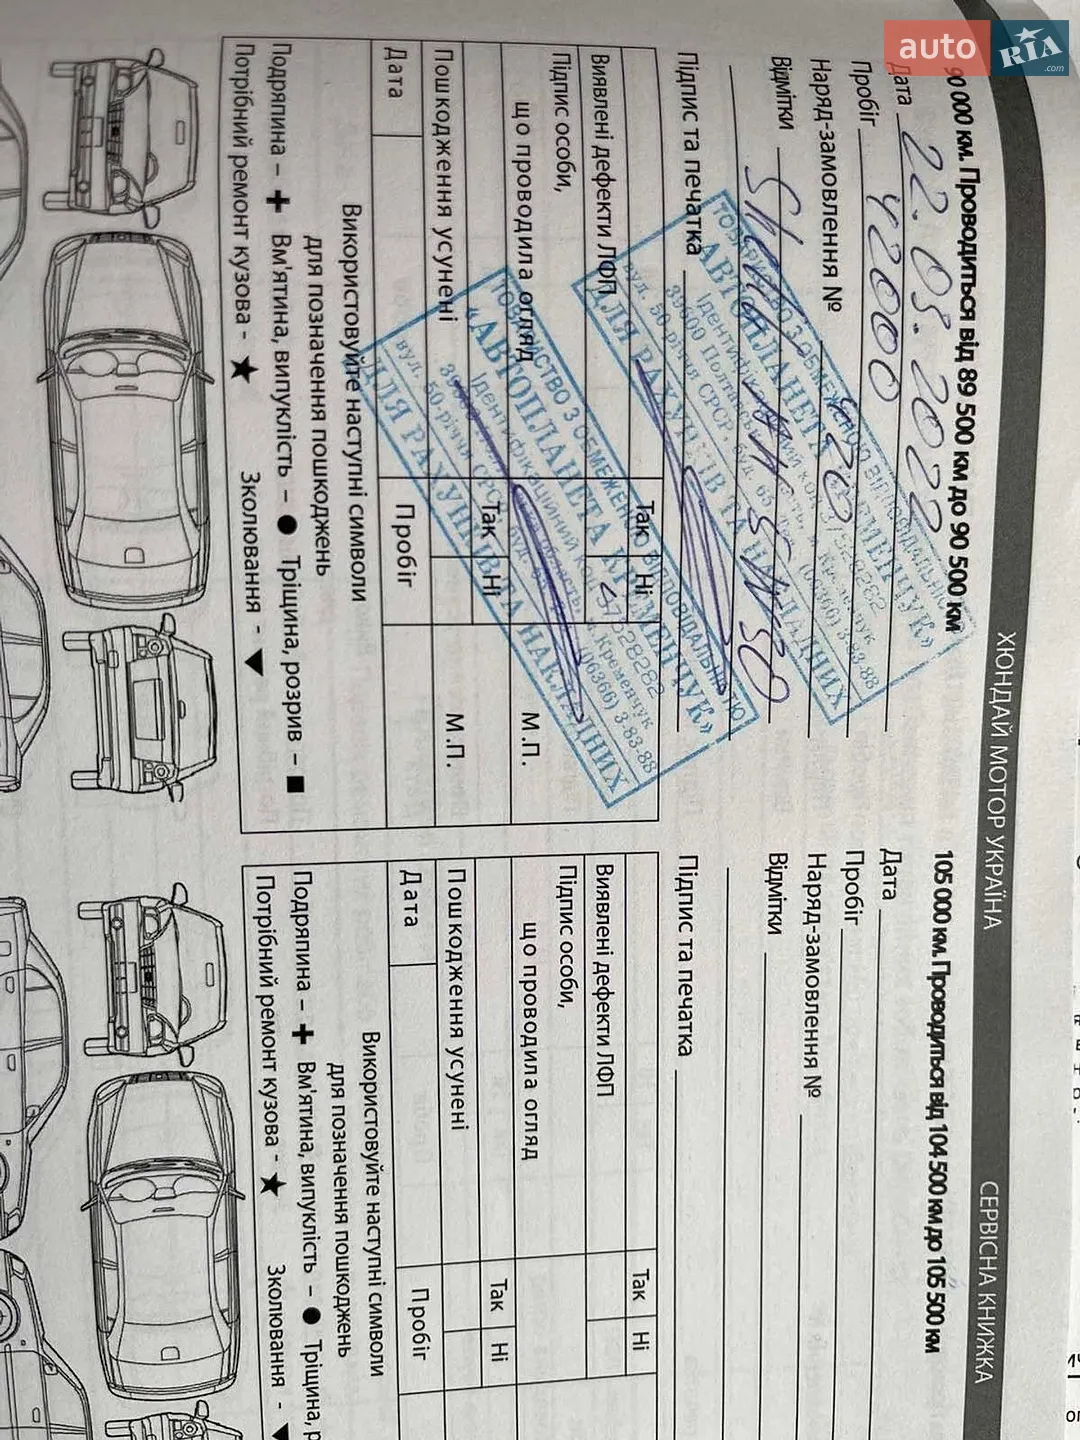 auto RIA .com
ХЮНДАЙ МОТОР УКРАЇНА
СЕРВІСНА КНИЖКА
90 000 км. Проводиться від 89 500 км до 90 500 км
Дата 22.03.2022
Пробіг 42000
Наряд-замовлення №
Відмітки
5W30
Підпис та печатка
ТОВАРИСТВО З ОБМЕЖЕНОЮ ВІДПОВІДАЛЬНІСТЮ
«АВТОПЛАНЕТА КРЕМЕНЧУК»
вул. 50-річчя СРСР,
ДЛЯ РАХУНКІВ ТА НАКЛАДНИХ
Так Ні
Виявлені дефекти ЛФП
Підпис особи,
що проводила огляд М.П.
Так Ні
Пошкодження усунені М.П.
Дата Пробіг
ТОВАРИСТВО З ОБМЕЖЕНОЮ ВІДПОВІДАЛЬНІСТЮ
«АВТОПЛАНЕТА КРЕМЕНЧУК»
Ідентифікаційний код 37528282
вул. 50-річчя СРСР, м. Кременчук
(05366) 3-83-88
ДЛЯ РАХУНКІВ ТА НАКЛАДНИХ
Використовуйте наступні символи
для позначення пошкоджень
Подряпина – ✚ Вм'ятина, випуклість – ● Тріщина, розрив – ■
Потрібний ремонт кузова - ★ Зколювання - ▼
105 000 км. Проводиться від 104 500 км до 105 500 км
Дата
Пробіг
Наряд-замовлення №
Відмітки
Підпис та печатка
Так Ні
Виявлені дефекти ЛФП
Підпис особи,
що проводила огляд
Так Ні
Пошкодження усунені
Дата Пробіг
Використовуйте наступні символи
для позначення пошкоджень
Подряпина – ✚ Вм'ятина, випуклість – ● Тріщина, р
Потрібний ремонт кузова - ★ Зколювання - ▼